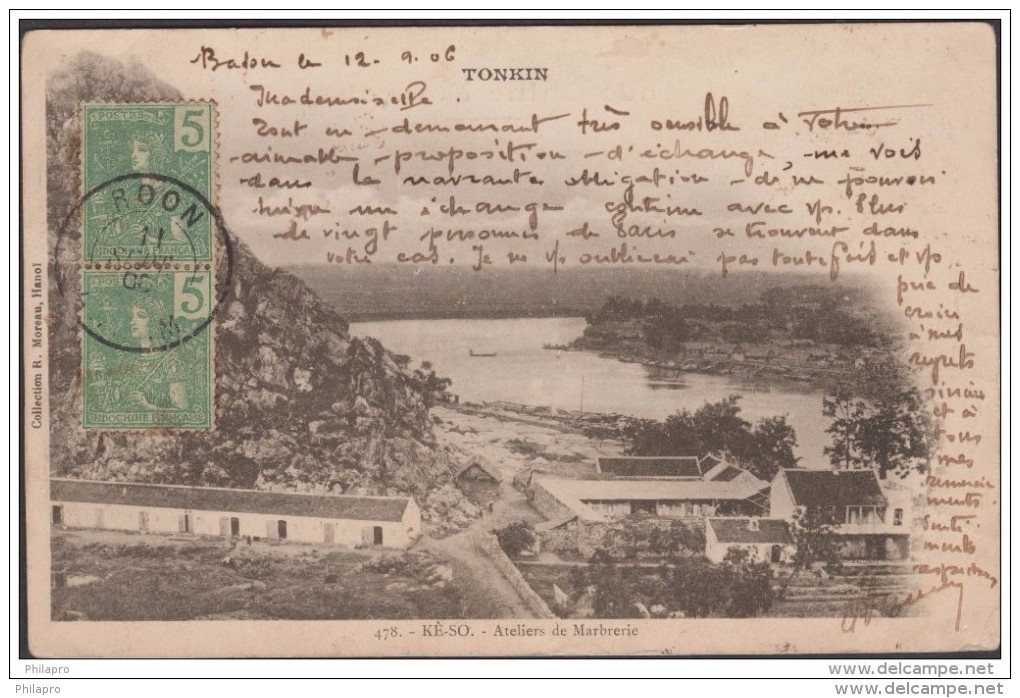 Badon le 12. 9. 06
TONKIN
Mademoiselle.
Tout en demeurant très sensible à votre
aimable proposition d'échange, me vois
dans la navrante obligation de ne pouvoir
faire un échange continu avec vs. Plus
de vingt personnes de Paris se trouvent dans
votre cas. Je ne vs oublierai pas toutefois et vs
prie de
croire
à mes
regrets
sincères
et à
tous
mes
remercie
ments
Senti-
ments
respectueux
POSTES
5
INDOCHINE FRANÇAISE
ROON
11
POSTES
5
INDOCHINE FRANÇAISE
Collection R. Moreau, Hanoï
478. - KÊ-SO. - Ateliers de Marbrerie
Philapro
www.delcampe.net
Philapro
www.delcampe.net